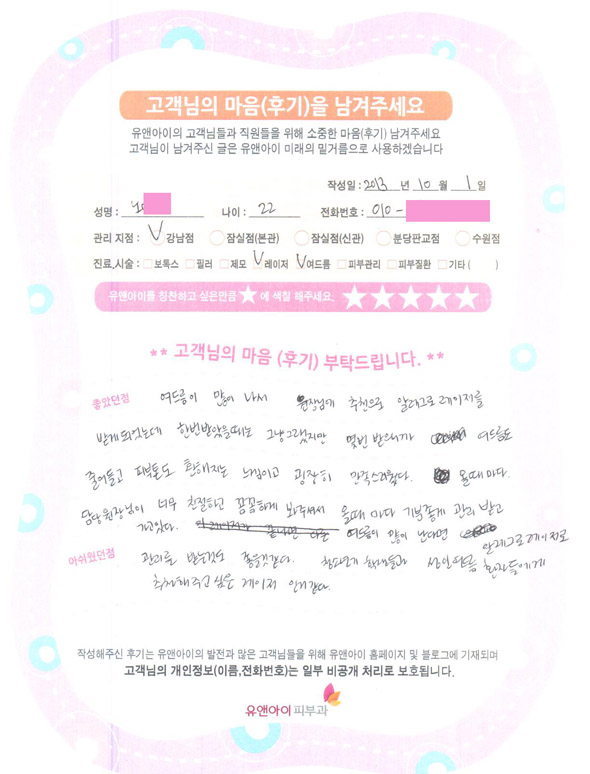 고객님의 마음(후기)을 남겨주세요
유앤아이의 고객님들과 직원들을 위해 소중한 마음(후기) 남겨주세요
고객님이 남겨주신 글은 유앤아이 미래의 밑거름으로 사용하겠습니다
작성일 : 2013 년 10 월 1 일
성명 : 나이 : 22 전화번호 : 010 -
관리 지점 : 강남점 잠실점(본관) 잠실점(신관) 분당판교점 수원점
진료,시술 : 보톡스 필러 제모 레이저 여드름 피부관리 피부질환 기타 ( )
유앤아이를 칭찬하고 싶은만큼 ★ 에 색칠 해주세요. ★★★★★
** 고객님의 마음 (후기) 부탁드립니다. **
좋았던점 여드름이 많이 나서 원장님에 추천으로 알레그로 레이저를
받게되었는데 한번받았을때는 그냥그랬지만 몇번 받으니까 여드름도
줄어들고 피부톤도 환해지는 느낌이고 굉장히 만족스러웠다. 올때마다.
담당원장님이 너무 친절하고 꼼꼼하게 봐주셔서 올때마다 기분좋게 관리 받고
가고있다. 여드름이 많이 난다면 알레그로레이저로
아쉬웠던점 관리를 받는것도 좋을것같다. 성인여드름 환자들에게
추천해주고 싶은 레이저 인거같다.
작성해주신 후기는 유앤아이의 발전과 많은 고객님들을 위해 유앤아이 홈페이지 및 블로그에 기재되며
고객님의 개인정보(이름,전화번호)는 일부 비공개 처리로 보호됩니다.
유앤아이 피부과